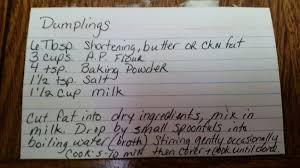 Dumplings
6 Tbsp. Shortening, butter or ckn fat
3 cups A.P. Flour
4 tsp. Baking Powder
1 1/2 tsp Salt
1 1/2 cup milk
Cut fat into dry ingredients, mix in
milk. Drop by small spoonfels into
boiling water (broth) Stirring gently occasionally
Cook 5-70 milk then cover + cook until done.